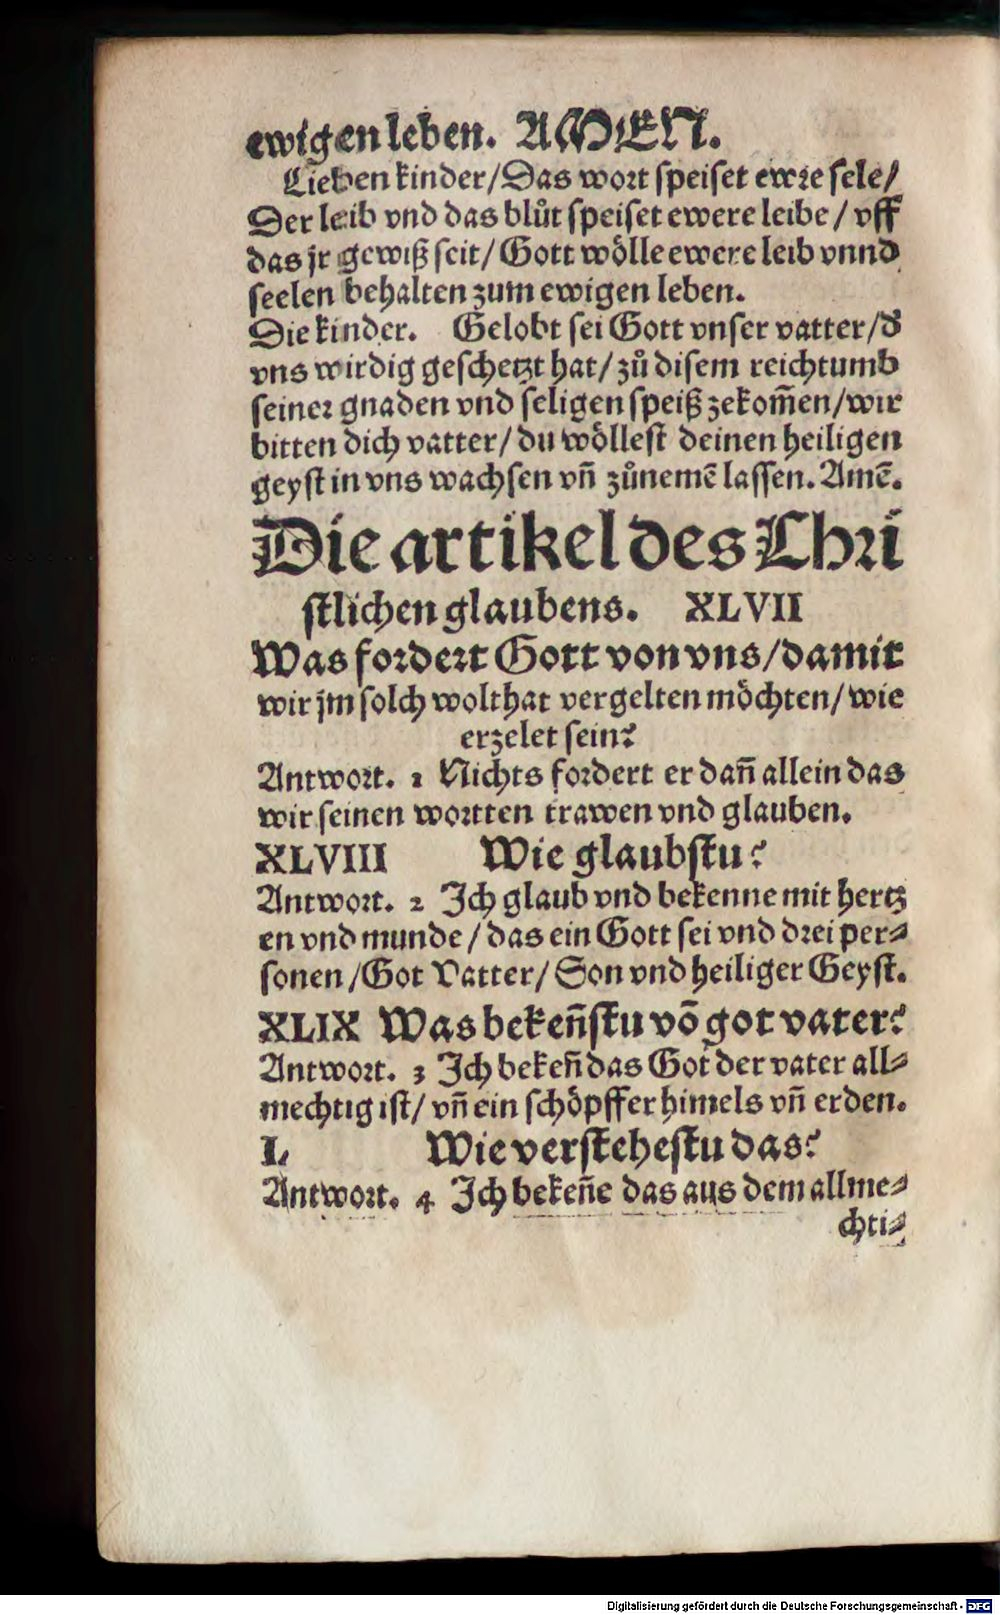 ewigen leben. AMEN.
Lieben kinder/Das wort speiset ewre sele/
Der leib vnd das blůt speiset ewere leibe / vff
das jr gewiß seit/ Gott wölle ewere leib vnnd
seelen behalten zum ewigen leben.
Die kinder. Gelobt sei Gott vnser vatter/d̕
vns wirdig geschetzt hat/ zů disem reichtumb
seiner gnaden vnd seligen speiß zekom̄en/wir
bitten dich vatter/ du wöllest deinen heiligen
geyst in vns wachsen vn̄ zůnemē lassen. Amē.
Die artikel des Chri
stlichen glaubens. XLVII
Was fordert Gott von vns/damit
wir jm solch wolthat vergelten möchten/ wie
erzelet sein?
Antwort. 1 Nichts fordert er dan̄ allein das
wir seinen wortten trawen vnd glauben.
XLVIII Wie glaubstu?
Antwort. 2 Ich glaub vnd bekenne mit hertz
en vnd munde / das ein Gott sei vnd drei per⸗
sonen /Got Vatter/ Son vnd heiliger Geyst.
XLIX Was beken̄stu vō got vater?
Antwort. 3 Ich beken̄ das Got der vater all⸗
mechtig ist/ vn̄ ein schöpffer himels vn̄ erden.
L Wie verstehestu das?
Antwort. 4 Ich beken̄e das aus dem allme⸗
chti⸗
Digitalisierung gefördert durch die Deutsche Forschungsgemeinschaft - DFG